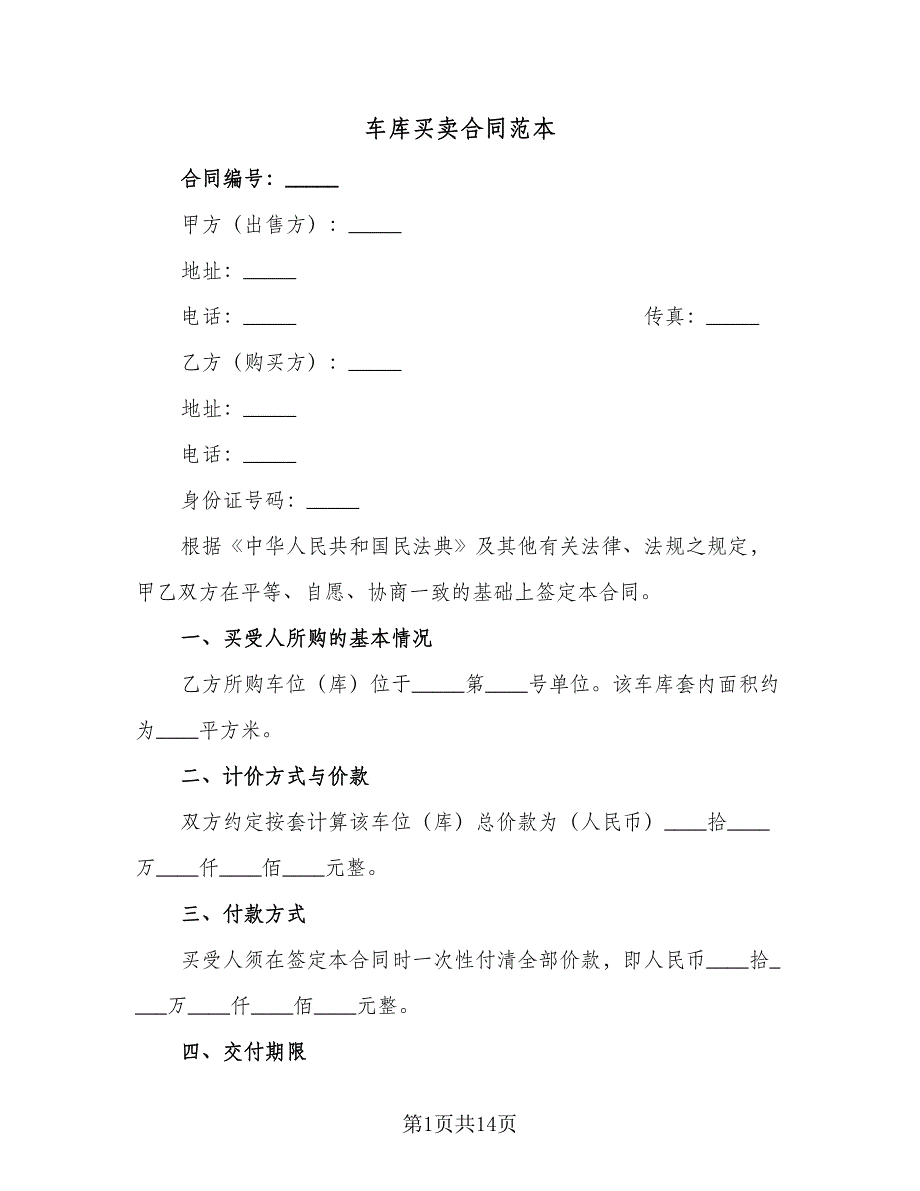 车库买卖合同范本
合同编号：_____
甲方（出售方）：_____
地址：_____
电话：_____ 传真：_____
乙方（购买方）：_____
地址：_____
电话：_____
身份证号码：_____
根据《中华人民共和国民法典》及其他有关法律、法规之规定，
甲乙双方在平等、自愿、协商一致的基础上签定本合同。
一、买受人所购的基本情况
乙方所购车位（库）位于_____第____号单位。该车库套内面积约
为____平方米。
二、计价方式与价款
双方约定按套计算该车位（库）总价款为（人民币）____拾____
万____仟____佰____元整。
三、付款方式
买受人须在签定本合同时一次性付清全部价款，即人民币____拾_
___万____仟____佰____元整。
四、交付期限
第1页共14页